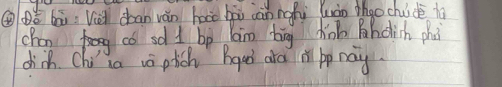 ④ Đề bài: Viết đoạn văn hoặc bài văn nghị luận theo chủ đề tự
chọn trong có sd 1 bp làm tăng tính khđịnh phủ
định. Chỉ ra và ptích hquả của bp này.